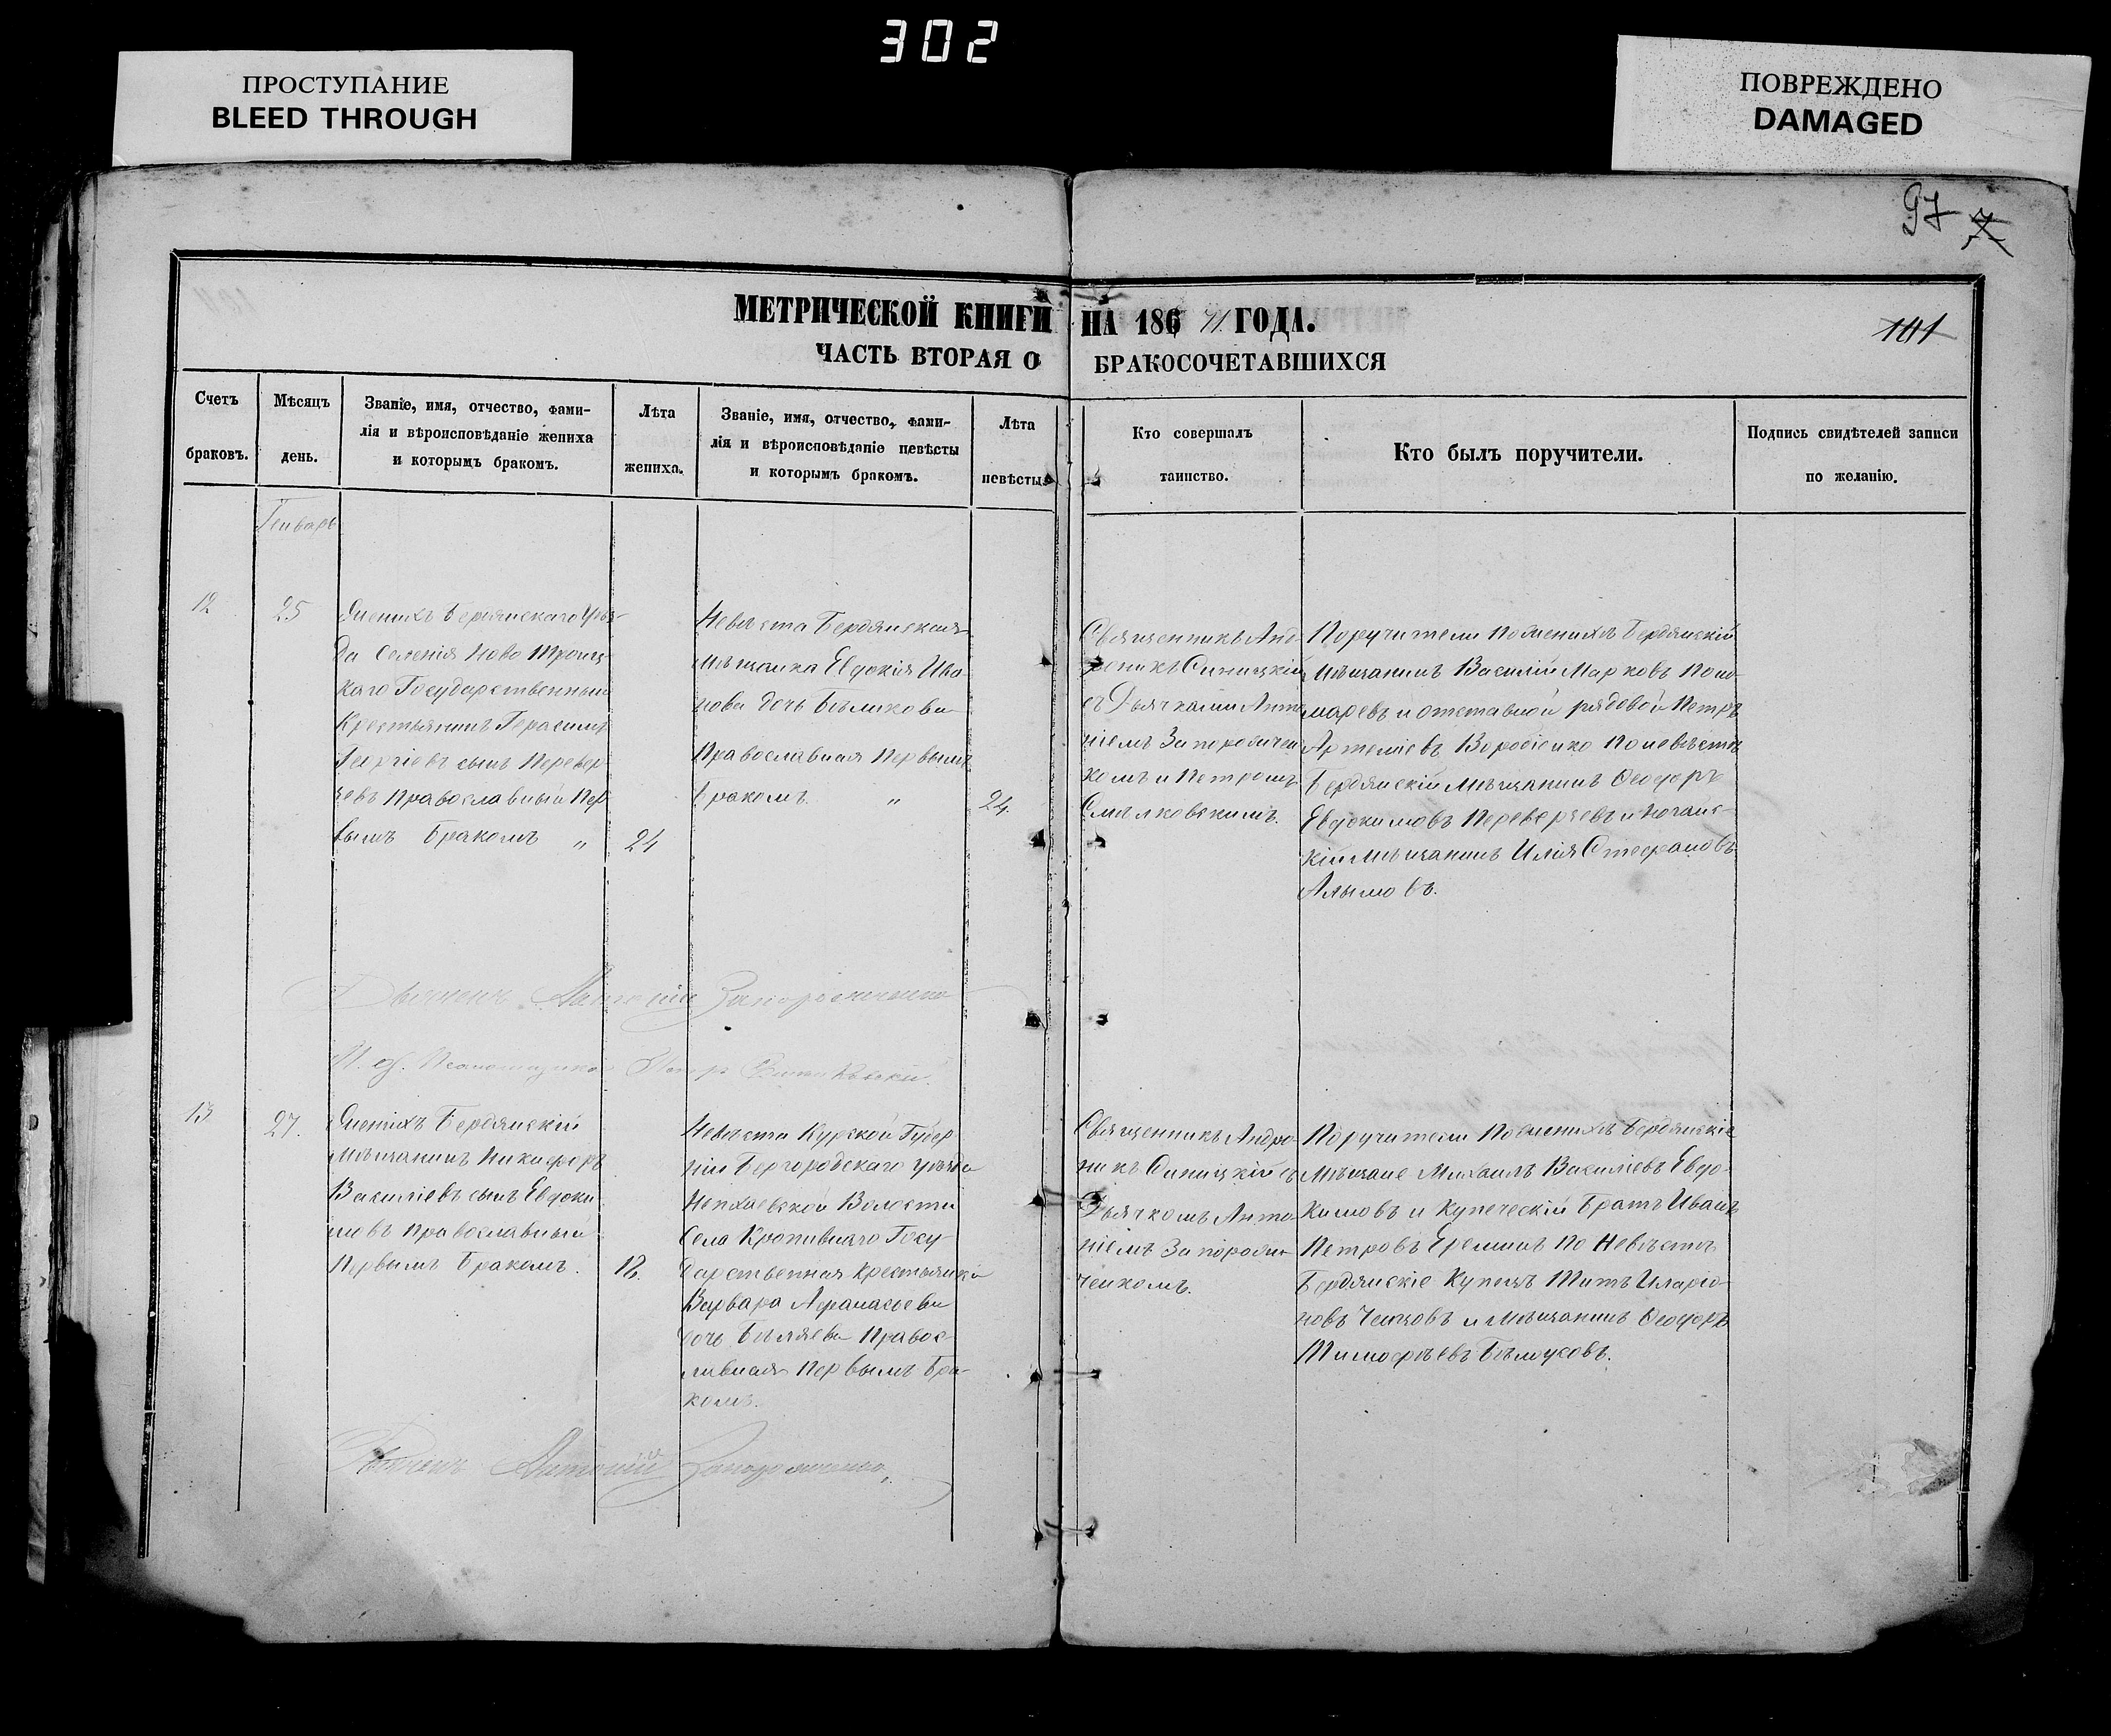 302
ПРОСТУПАНИЕ
BLEED THROUGH
ПОВРЕЖДЕНО
DAMAGED
97
МЕТРИЧЕСКОЙ КНИГИ НА 186 71 ГОДА.
101
ЧАСТЬ ВТОРАЯ О БРАКОСОЧЕТАВШИХСЯ
Счетъ
браковъ.
Мѣсяцъ
день.
Званіе, имя, отчество, фами-
лія и вѣроисповѣданіе жениха
и которымъ бракомъ.
Лѣта
жениха.
Званіе, имя, отчество, фами-
лія и вѣроисповѣданіе невѣсты
и которымъ бракомъ.
Лѣта
невѣсты.
Кто совершалъ
таинство.
Кто былъ поручители.
Подпись свидѣтелей записи
по желанію.
Генварь
12
25
Женихъ Бердянскаго Уѣз-
да Селенія Ново Троиц-
каго Государственный
Крестьянинъ Герасимъ
Георгіевъ сынъ Перевер
зевъ Православный Пер
вымъ Бракомъ „
24
Невѣста Бердянская
мѣщанка Евдокія Ива
нова дочь Бѣликова
Православная Первымъ
Бракомъ. „
24.
Священникъ Анд-
роникъ Синицкій
съ Дьячками Анто
ніемъ Запорожчен
комъ и Петромъ
Смѣлковскимъ.
Поручители По женихѣ Бердянскій
мѣщанинъ Василій Марковъ Поно-
маревъ и отставной рядовой Петръ
Артеміевъ Воробіенко По невѣстѣ
Бердянскій Мѣщанинъ Ѳеодоръ
Евдокимовъ Переверзевъ и Ногайс-
кій Мѣщанинъ Илія Стефановъ
Алымовъ.
Дьячекъ Антоній Запорожченко
Петр
13
27.
Женихъ Бердянскій
мѣщанинъ Никифоръ
Василіевъ сынъ Евдоки
мовъ Православный
Первымъ Бракомъ.
18.
Невѣста Курской Губер
ніи Белгородскаго уѣзда
Волости
Села Кропивнаго Госу-
дарственная крестьянка
Варвара Афанасьева
дочь Бѣляева Правос-
лавная Первымъ Бра-
комъ.
Священникъ Андро-
никъ Синицкій съ
Дьячкомъ Анто
ніемъ Запорож-
ченкомъ.
Поручители По женихѣ Бердянскіе
Мѣщане Михаилъ Василіевъ Евдо-
кимовъ и Купеческій Братъ Иванъ
Петровъ Ереминъ По Невѣстѣ
Бердянскіе Купецъ Титъ Иларіо-
новъ и Мѣщанинъ Ѳеодоръ
Тимофѣевъ
Дьячекъ Антоній Запорожченко